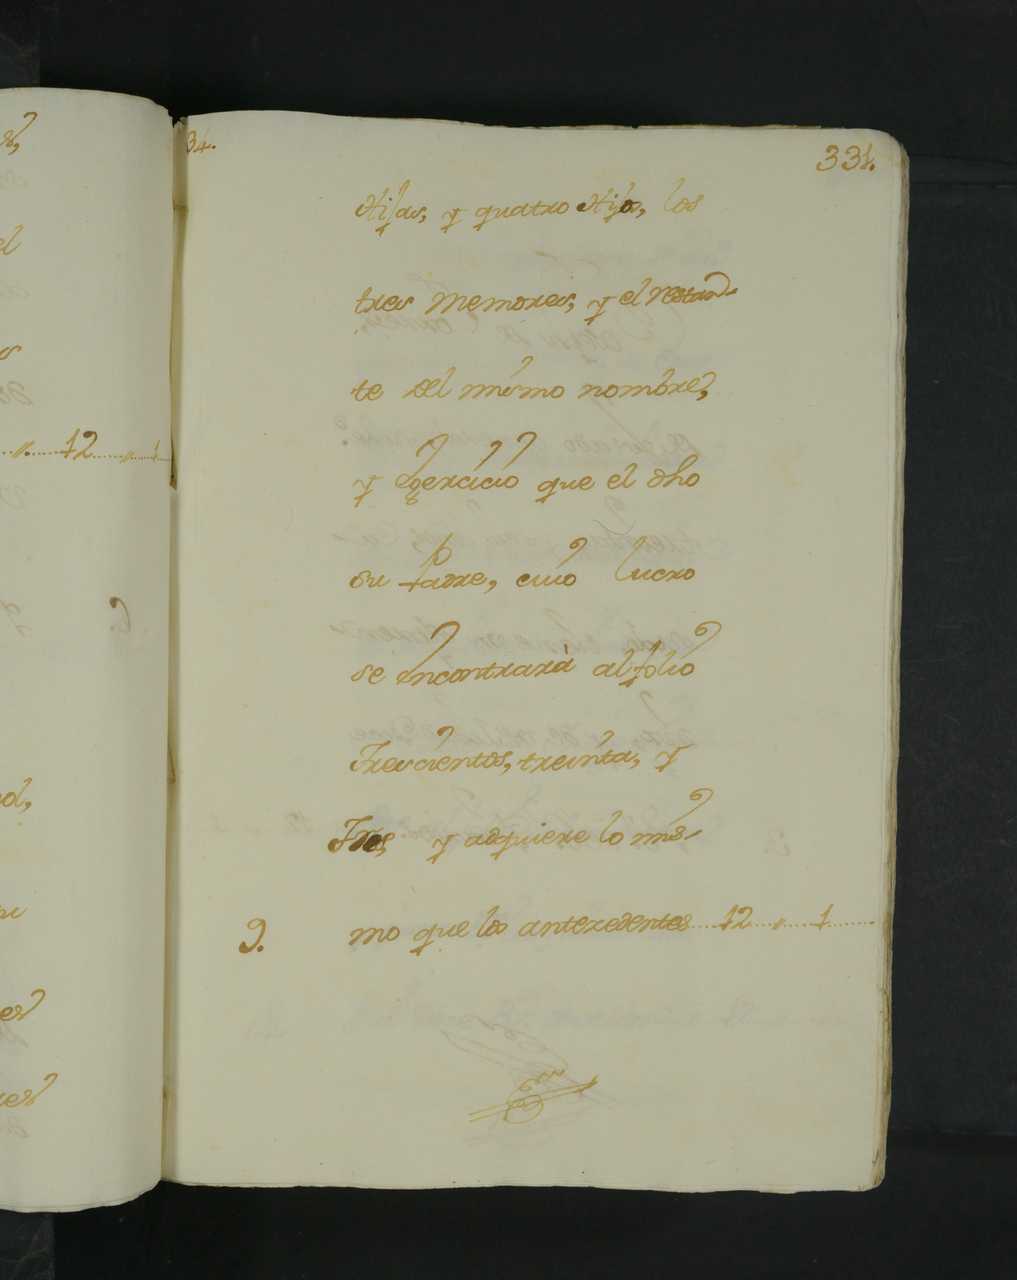 34.
331.
Hijas, y quatro Hijos, los
tres Memores, y el restan-
te del mismo nombre,
y egercicio que el dho
su Padre, cuio lucro
se encontrará al folio
Trescientos, treinta, y
Tres y adquiere lo mis-
9. mo que los antezedentes....12...,,....1......
...,,......12......,,....1